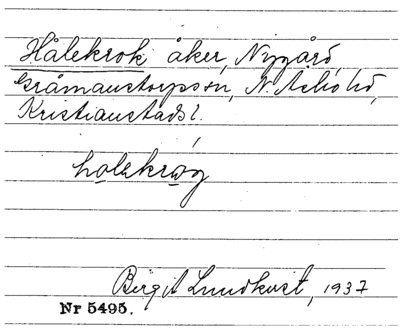 Hålekrok åker, Nygård,
Gråmanstorps sn, N. Åsbo hd,
Kristianstads l.
hålekrǫg
Birgit Lundkvist, 1937
Nr 5495.